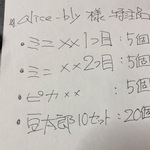 alice-bly 様 特注品
・ミニ××1つ目:5個
・ミニ××2つ目:5個
・ピカ××:5個
・豆太郎10セット:20個